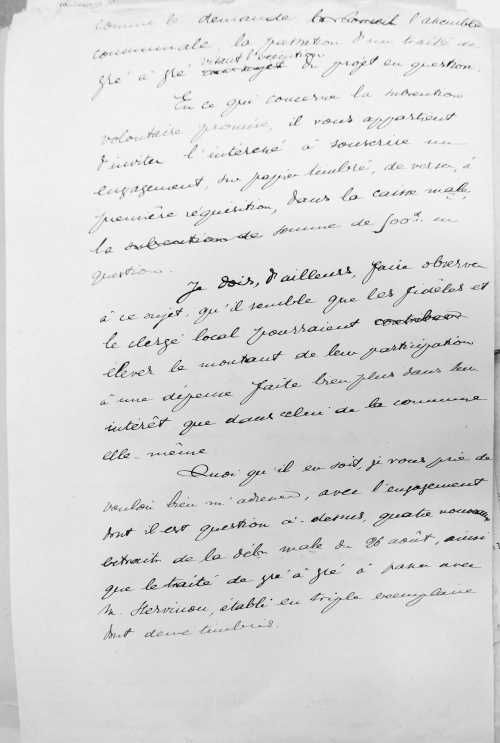 comme le demande le conseil l'assemblée
communale, la passation d'un traité de
gré à gré visant l'exécution du projet en question.
En ce qui concerne la subvention
volontaire promise, il vous appartient
d'inviter l'intéressé à souscrire un
engagement, sur papier timbré, de verser, à
première réquisition, dans la caisse male,
la subvention de somme de 500f. en
question.
Je dois, d'ailleurs, faire observer
à ce sujet, qu'il semble que les fidèles et
le clergé local pourraient contribuer
élever le montant de leur participation
à une dépense faite bien plus dans leur
intérêt que dans celui de la commune
elle-même.
Quoi qu'il en soit, je vous prie de
vouloir bien m'adresser, avec l'engagement
dont il est question ci-dessus, quatre nouveaux
extraits de la délon male du 26 août, ainsi
que le traité de gré à gré à passer avec
M. Hervinou, établi en triple exemplaire
dont deux timbrés.